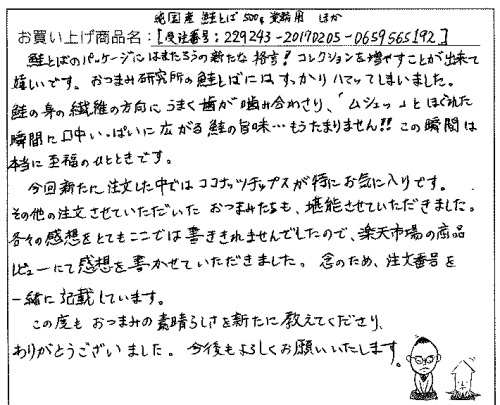 純国産 鮭とば 500g 業務用 ほか
お買い上げ商品名：[受注番号：229243-20170205-0659565192]
鮭とばのパッケージにはまたもうの新たな格言！コレクションを増やすことが出来て
嬉しいです。おつまみ研究所の鮭とばにはすっかりハマッてしまいました。
鮭の身の繊維の方向にうまく歯が噛み合わさり、「ムシュッ」とほぐれた
瞬間に口中いっぱいに広がる鮭の旨味…もうたまりません!!この瞬間は
本当に至福のひとときです。
今回新たに注文した中ではココナッツチップスが特にお気に入りです。
その他の注文させていただいた おつまみたちも、堪能させていただきました。
各々の感想をとてもここでは書ききれませんでしたので、楽天市場の商品
レビューにて感想を書かせていただきました。念のため、注文番号を
一緒に記載しています。
この度も おつまみの素晴らしさを新たに教えてくださり、
ありがとうございました。今後もよろしくお願いいたします。